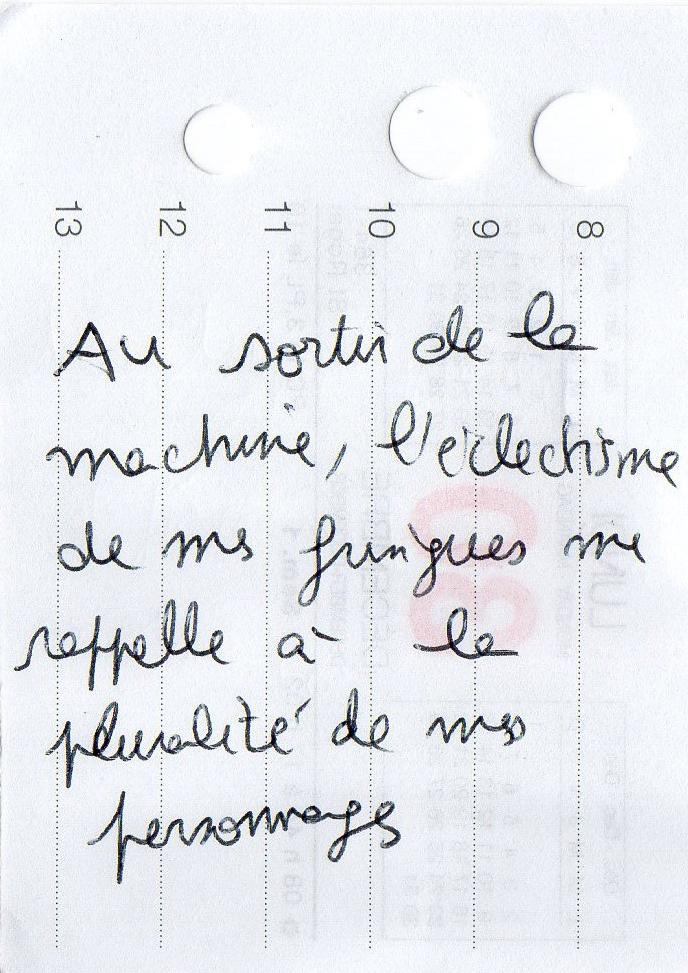 13 12 11 10 9 8
Au sortir de la
machine, l'éclectisme
de mes fringues me
rappelle à la
pluralité de mes
personnages